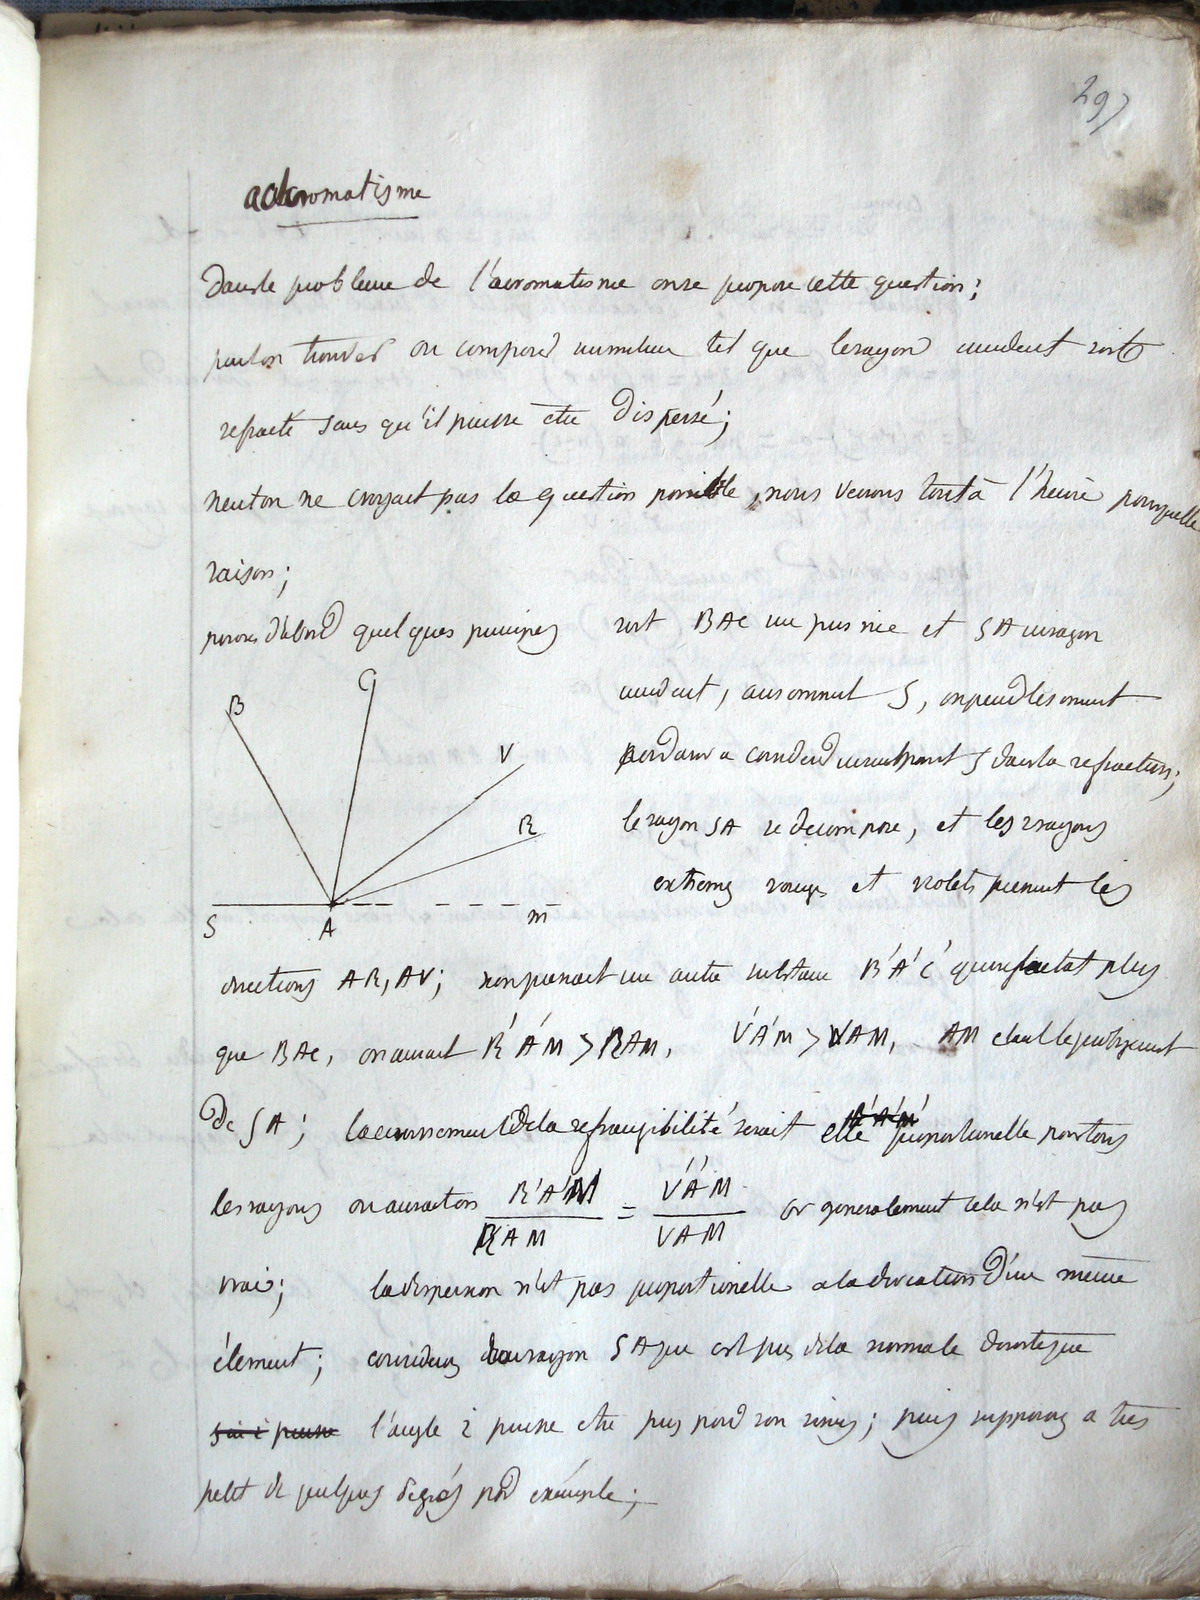 297
acromatisme
Dans le probleme de l'acromatisme on se propose cette question;
peut on trouver ou composer un milieu tel que le rayon incident sorte
refracté sans qu'il puisse etre dispersé;
neuton ne croyait pas la question possible, nous verrons tout à l'heure pour quelle
raison;
posons d'abord quelques principes
soit BAC un prisme et SA un rayon
incident, au sommet S, on prend le sommet
pour n'avoir a considerer
la refraction;
le rayon SA se decompose, et les rayons
extremes rouges et violets prennent les
B C V R S A m
directions AR, AV; si on prenait une autre substance B'A'C' qui refractat plus
que BAC, on aurait R'A'M > RAM, V'A'M > VAM, AM etant le prolongement
de SA; l'accroissement de la refrangibilité serait elle proportionelle pour tous
les rayons on aurait alors R'A'M / RAM = V'A'M / VAM or generalement cela n'est pas
vrai; la dispersion n'est pas proportionelle a la deviation d'un même
élement; considerons un rayon SA pres de la normale de sorte que
l'angle i puisse etre pris pour son sinus; puis supposons a tres
petit de quelques degrés par exemple;